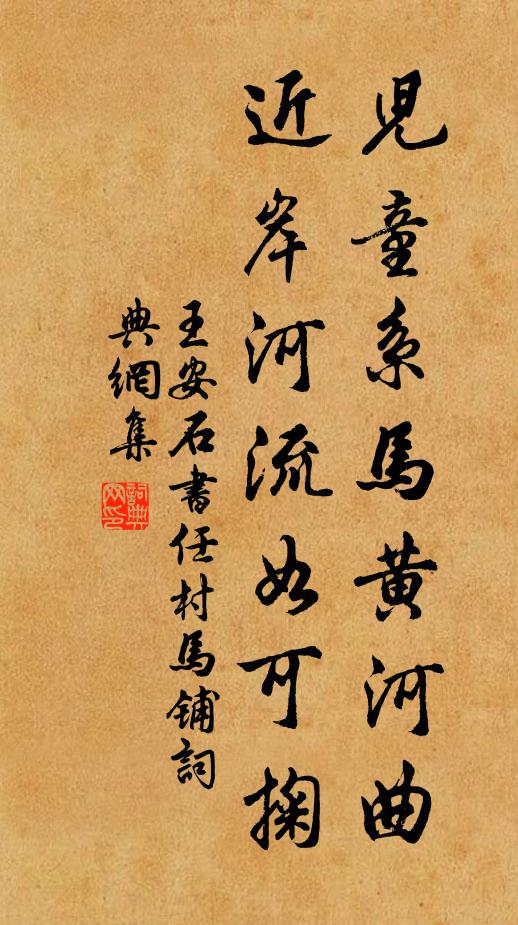 児童系馬黄河曲
近岸河流如可掬
王安石書任村馬鋪詞
典網集
詞典网印